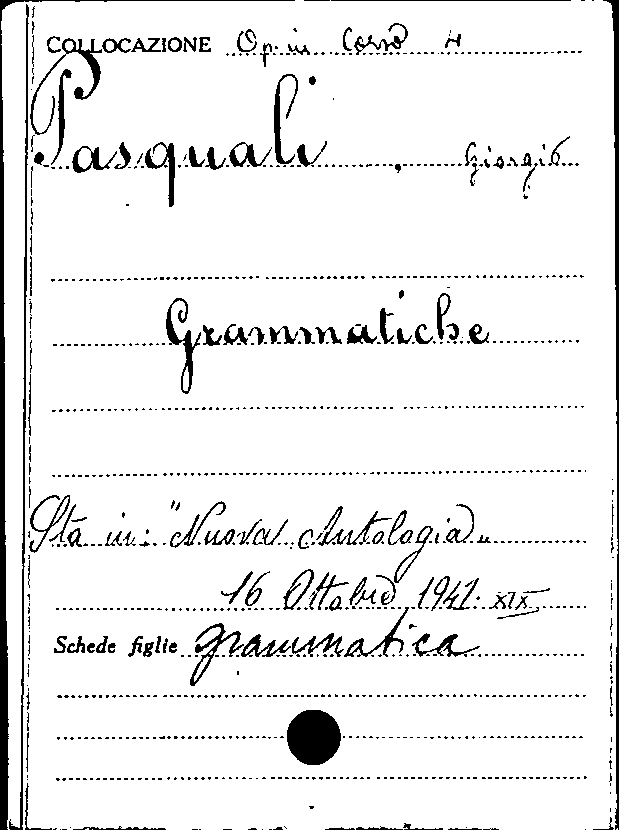 COLLOCAZIONE Op. in Corso 4
Pasquali, Giorgio
Grammatiche
Sta in: "Nuova Antologia„
16 Ottobre 1941. XIX
Schede figlie grammatica